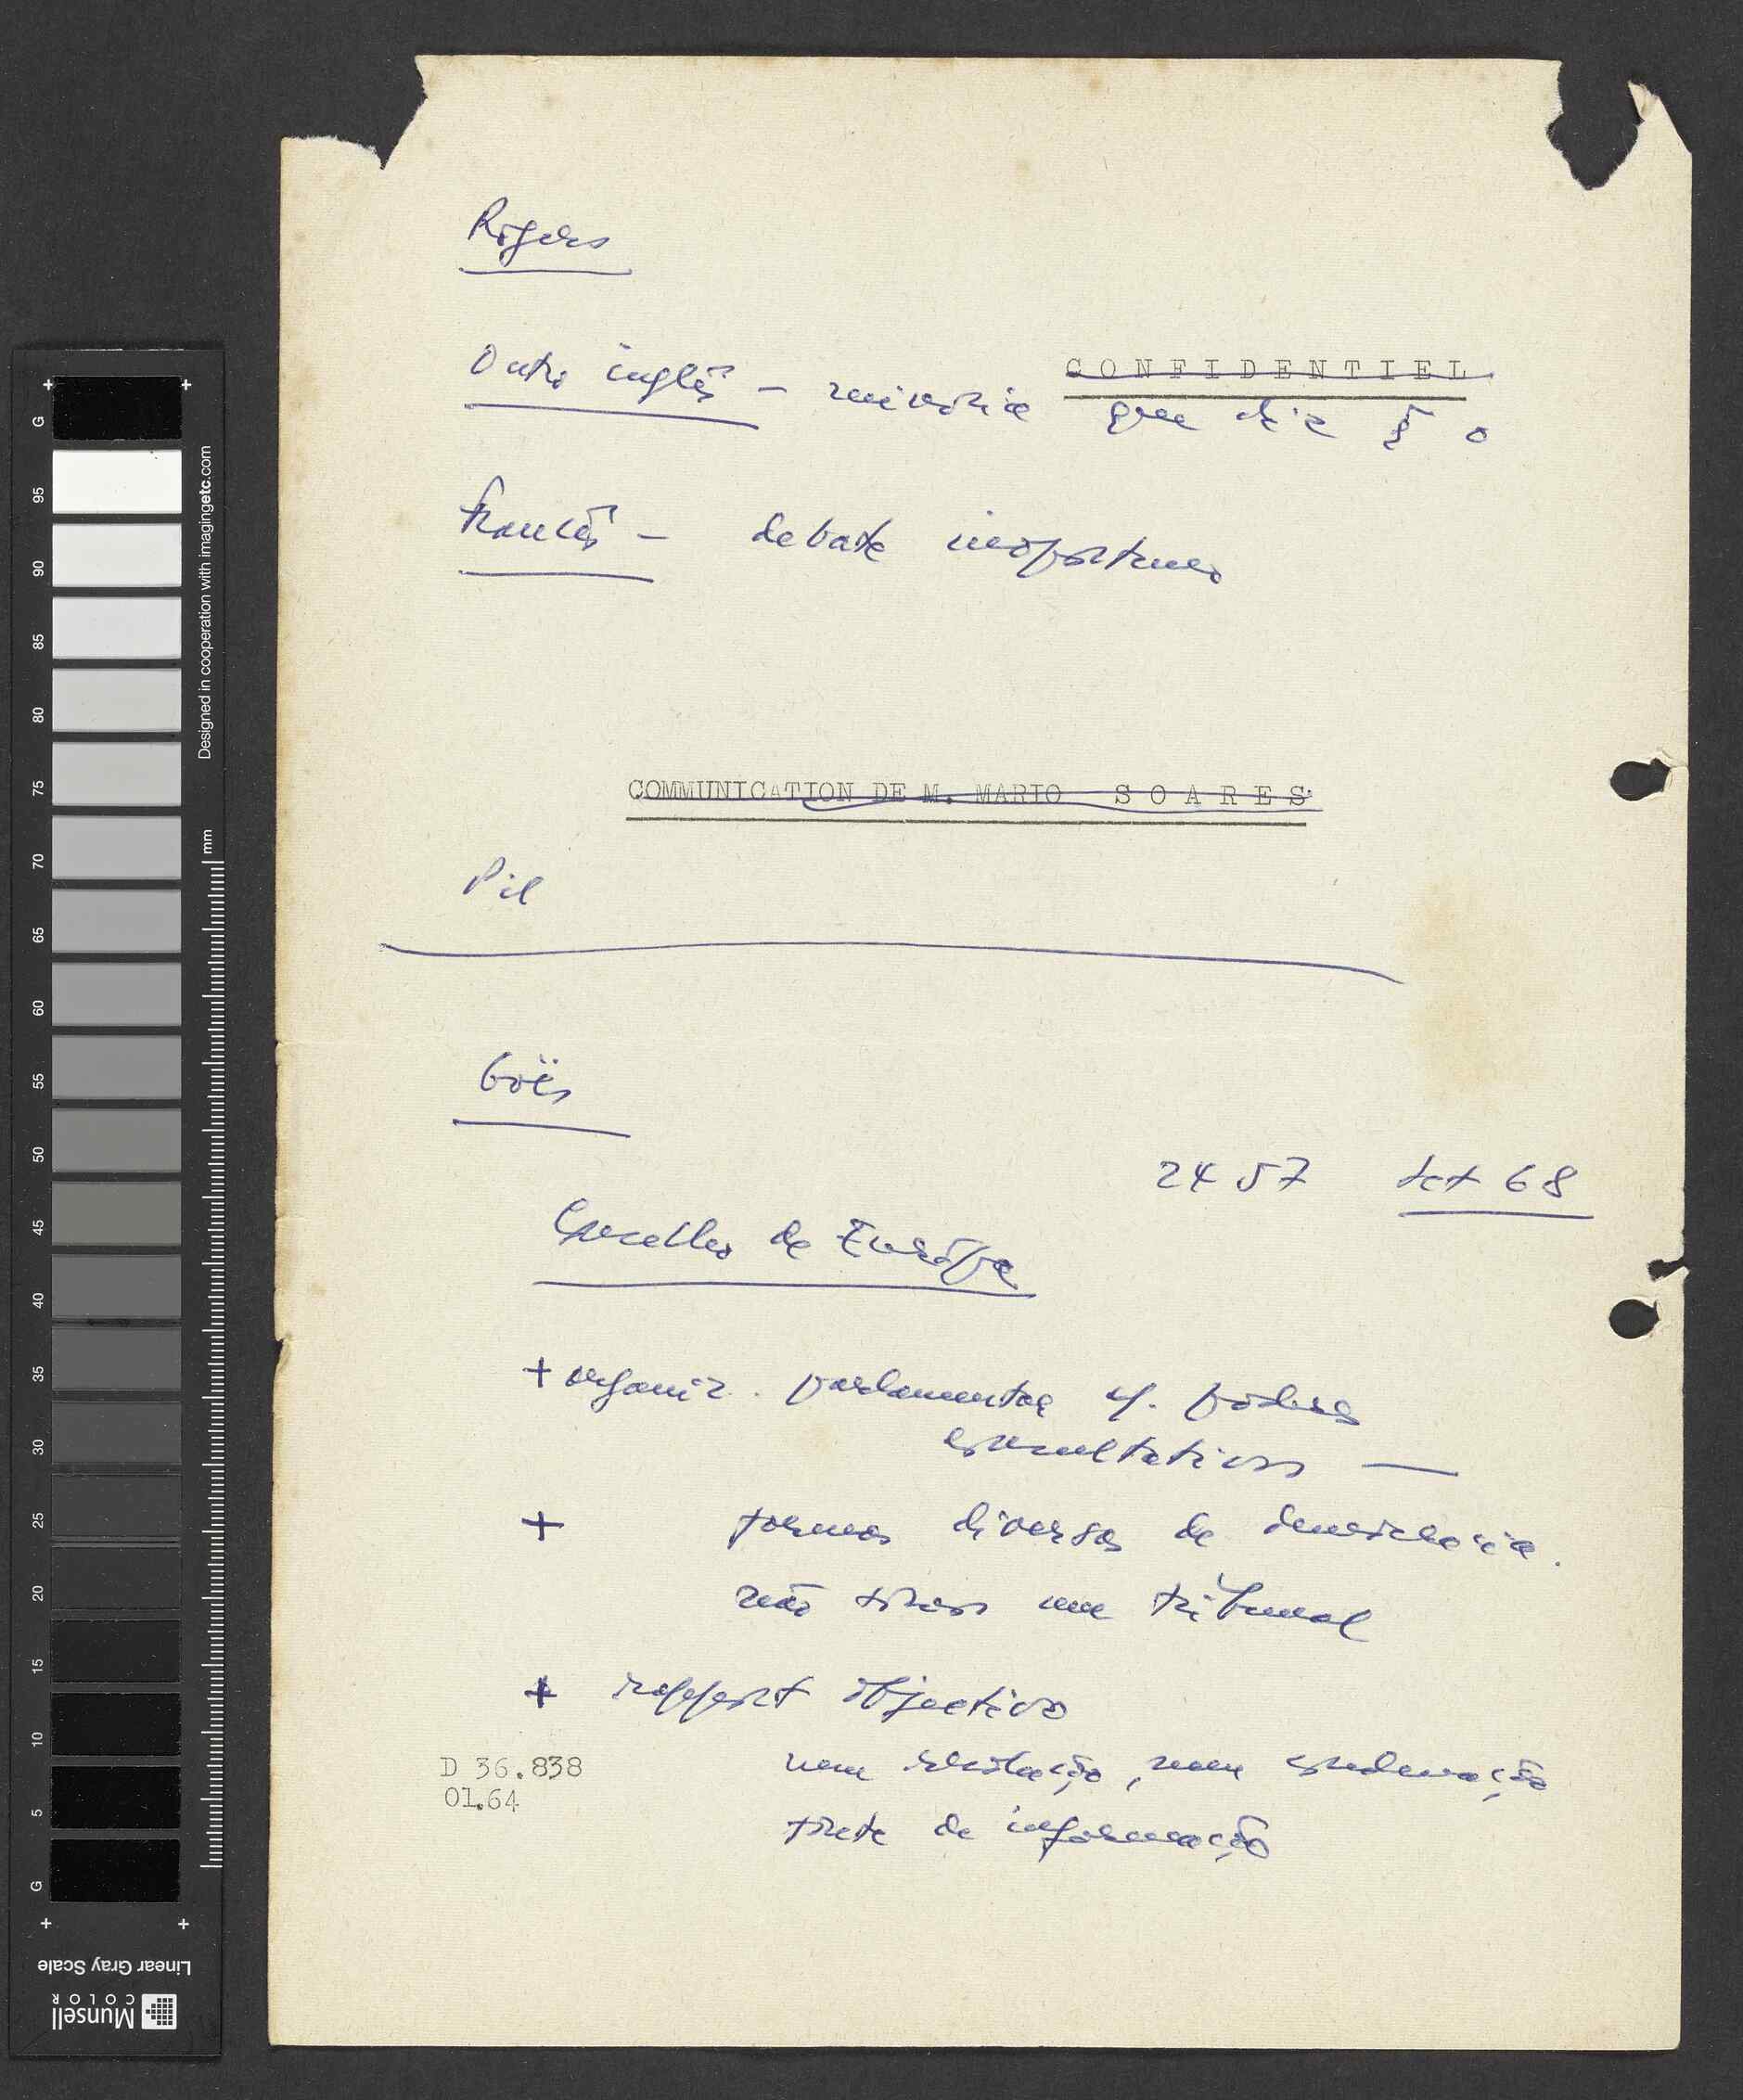 Rogers
CONFIDENTIEL
Outro inglês – minoria que diz § o
Francês – debate inoportuno
COMMUNICATION DE M. MARIO SOARES
Pil
Goës
2457 set 68
Conselho de Európa
+ organiz. parlamentar c/. poderes
consultativos —
+ formas diversas de democracia.
não somos um tribunal
+ rapport objectivo
nem absolvição, nem condenação
fonte de informação
D 36.838
01.64
Designed in cooperation with imagingetc.com
mm
G
95
90
85
80
75
70
65
60
55
50
45
40
35
30
25
20
15
10
5
G
Linear Gray Scale
Munsell
COLOR